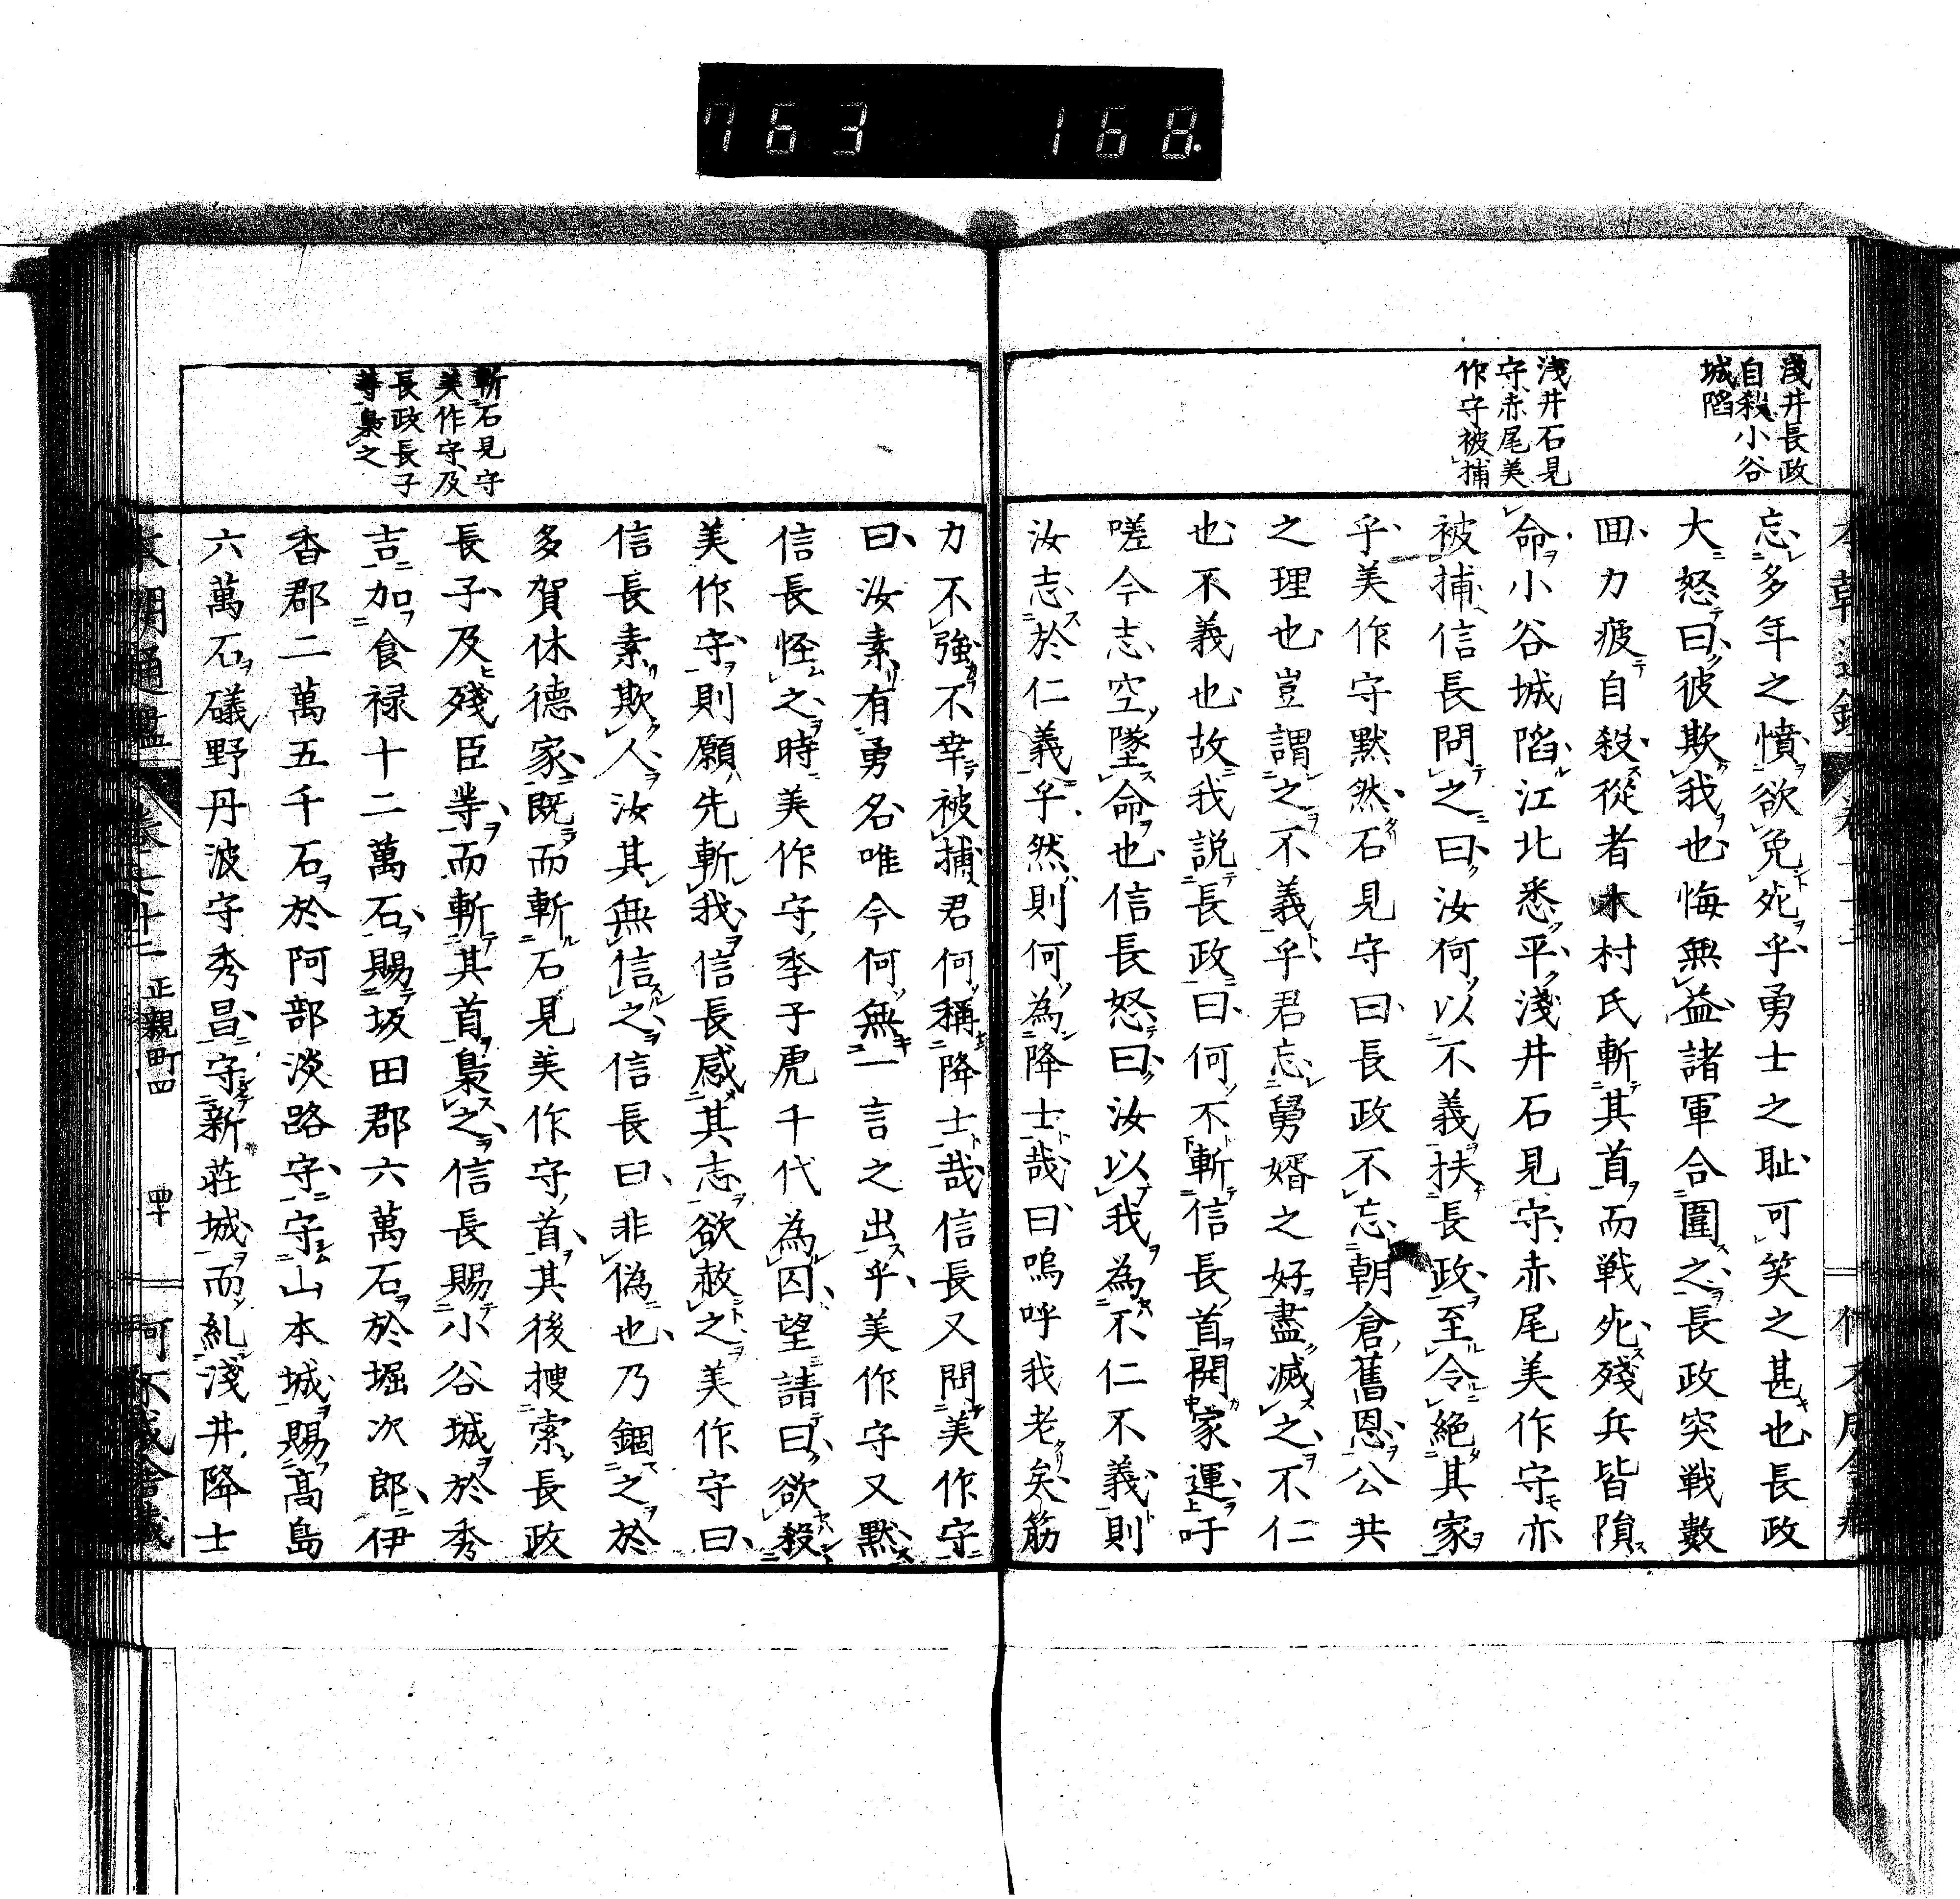 763 168.
淺井長政
自殺小谷
城陷
淺井石見
守赤尾美
作守被捕
忘多年之憤欲免死乎勇士之耻可笑之甚也長政
大怒曰彼欺我也悔無益諸軍合圍之長政突戦數
囬力疲自殺從者木村氏斬其首而戦死殘兵皆隕
命小谷城陷江北悉平淺井石見守赤尾美作守亦
被捕信長問之曰汝何以不義扶長政至令絶其家
乎美作守黙然石見守曰長政不忘朝倉舊恩公共
之理也豈謂之不義乎君忘舅婿之好盡滅之不仁
也不義也故我説長政曰何不斬信長首開家運吁
嗟今志空墜命也信長怒曰汝以我為不仁不義則
汝志於仁義乎然則何為降士哉曰嗚呼我老矣筋
斬石見守
美作守及
長政長子
等梟之
力不強不幸被捕君何稱降士哉信長又問美作守
曰汝素有勇名唯今何無一言之出乎美作守又黙
信長怪之時美作守季子虎千代為囚望請曰欲殺
美作守則願先斬我信長感其志欲赦之美作守曰
信長素欺人汝其無信之信長曰非偽也乃錮之於
多賀休德家既而斬石見美作守首其後搜索長政
長子及殘臣等而斬其首梟之信長賜小谷城於秀
吉加食禄十二萬石賜坂田郡六萬石於堀次郎伊
香郡二萬五千石於阿部淡路守守山本城賜髙島
六萬石礒野丹波守秀昌守新莊城而糺淺井降士
正親町四